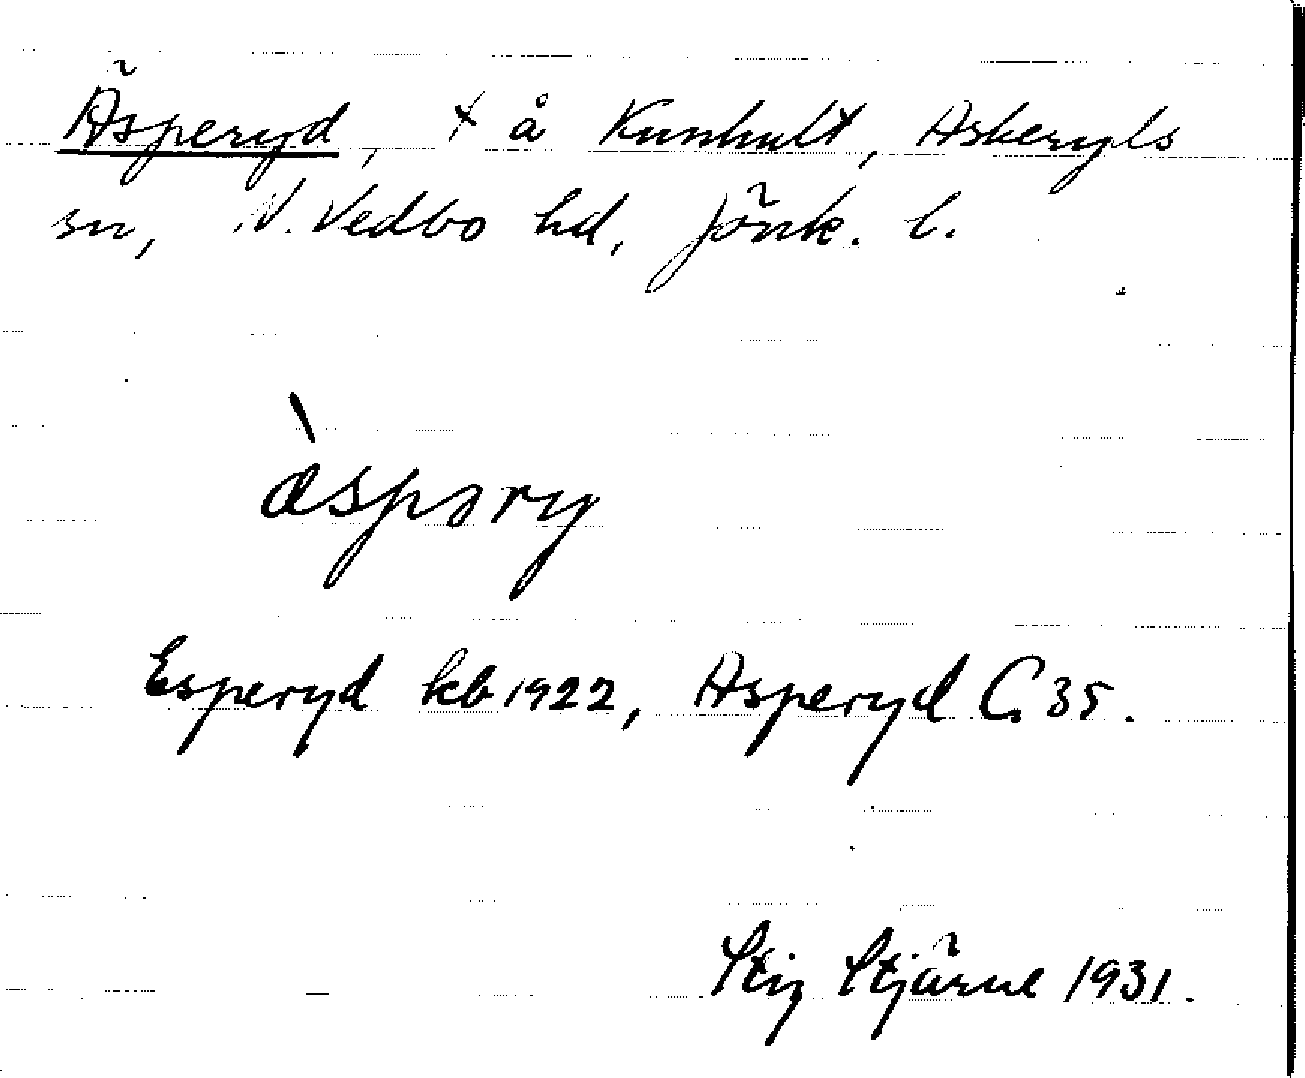 Äsperyd, t å Kunhult, Askeryds
sn, N. Vedbo hd, Jönk. l.
àspəry
Esperyd kb 1922, Asperyd C. 35.
Stig Stjärne 1931.